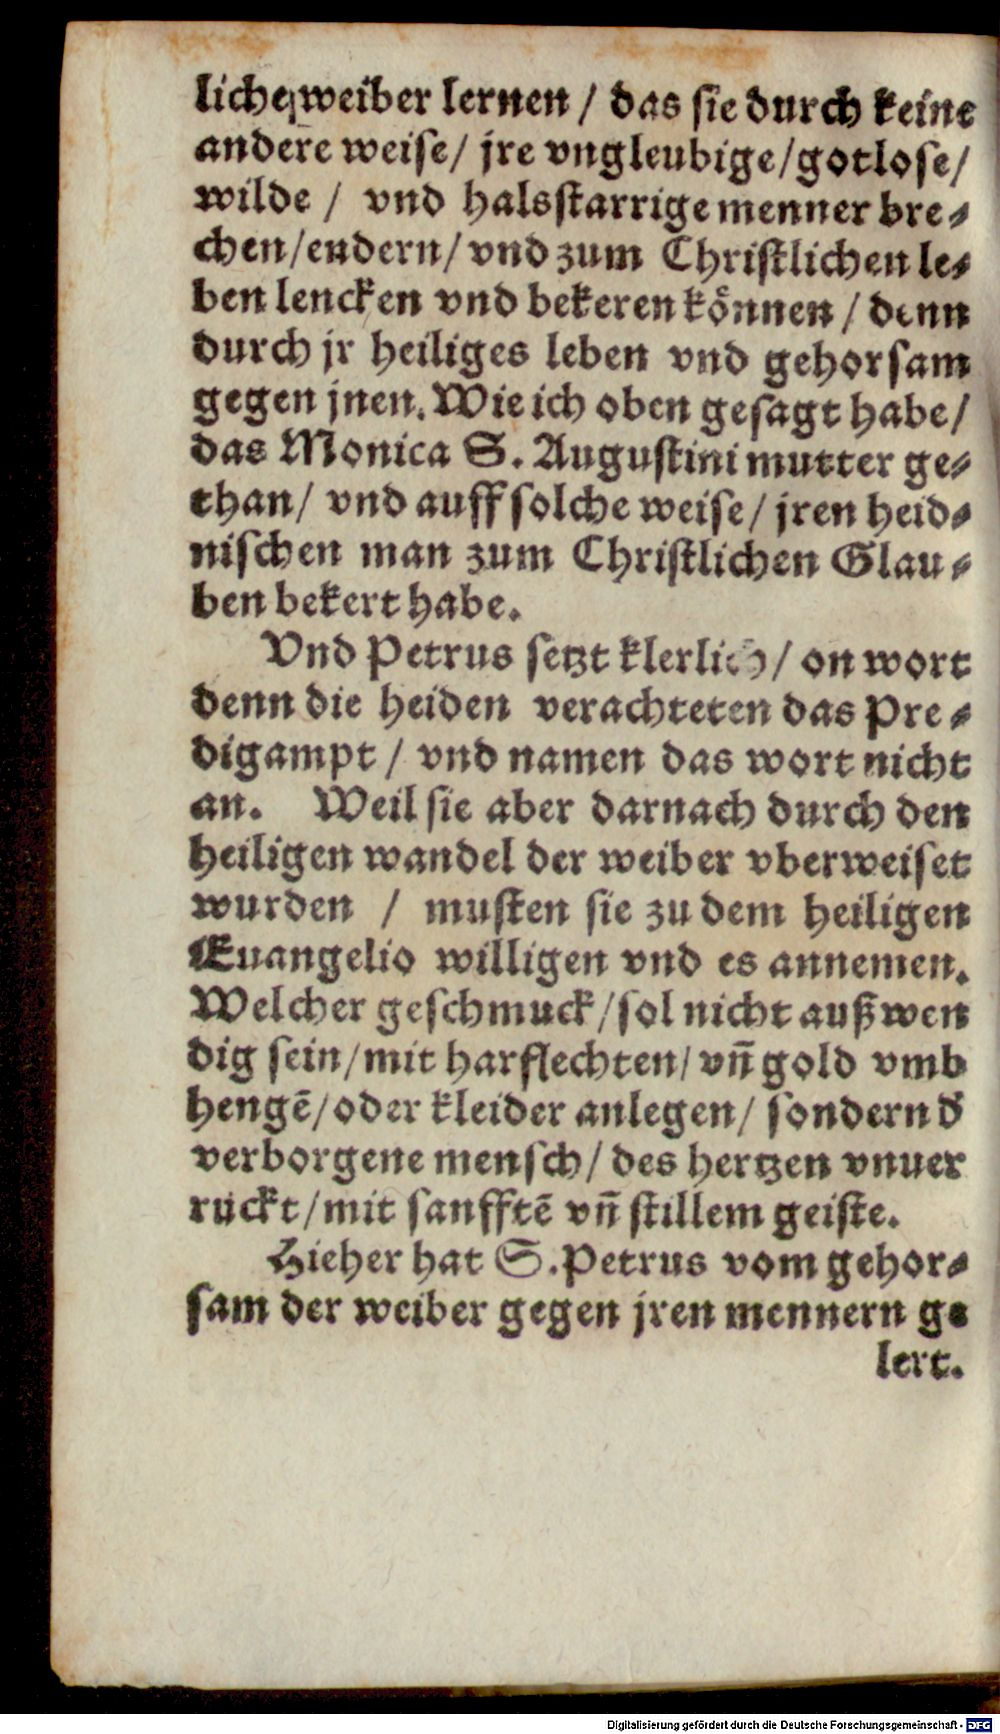 liche weiber lernen / das sie durch keine
andere weise / jre vngleubige / gotlose /
wilde / vnd halsstarrige menner bre⸗
chen / endern / vnd zum Christlichen le⸗
ben lencken vnd bekeren koͤnnen / denn
durch jr heiliges leben vnd gehorsam
gegen jnen. Wie ich oben gesagt habe /
das Monica S. Augustini mutter ge⸗
than / vnd auff solche weise / jren heid⸗
nischen man zum Christlichen Glau⸗
ben bekert habe.
Vnd Petrus setzt klerlich / on wort
denn die heiden verachteten das Pre⸗
digampt / vnd namen das wort nicht
an. Weil sie aber darnach durch den
heiligen wandel der weiber vberweiset
wurden / musten sie zu dem heiligen
Euangelio willigen vnd es annemen.
Welcher geschmuck / sol nicht außwen
dig sein / mit harflechten / vñ gold vmb
hengē / oder kleider anlegen / sondern d'
verborgene mensch / des hertzen vnuer
ruckt / mit sanfftē vñ stillem geiste.
Hieher hat S. Petrus vom gehor⸗
sam der weiber gegen jren mennern ge
lert.
Digitalisierung gefördert durch die Deutsche Forschungsgemeinschaft - DFG